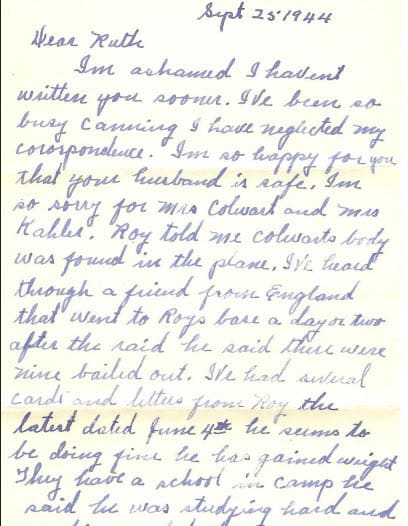 Sept 25 1944
Dear Ruth
I'm ashamed I havent
written you sooner. I've been so
busy canning I have neglected my
corospondence. I'm so happy for you
that your husband is safe. I'm
so sorry for Mrs Colwart and Mrs
Kahler. Roy told me Colwarts body
was found in the plane. I've heard
through a friend from England
that went to Roys base a day or two
after the raid he said there were
nine bailed out. I've had several
cards and letters from Roy the
latest dated June 4th he seems to
be doing fine he has gained weight
They have a school in camp he
said he was studying hard and